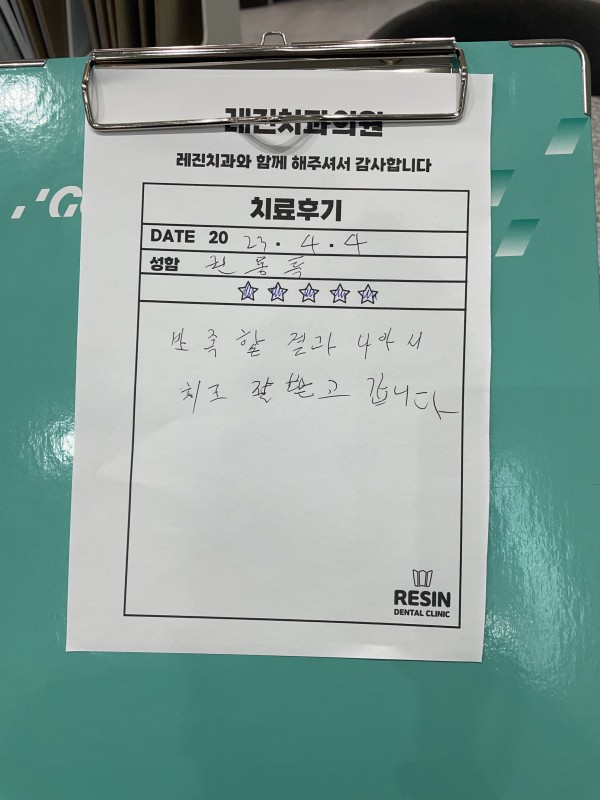 레진치과의원
레진치과와 함께 해주셔서 감사합니다
치료후기
DATE 20 23. 4. 4
성함 권동특
만족할 결과 나와서
치료 잘 받고 갑니다
RESIN
DENTAL CLINIC